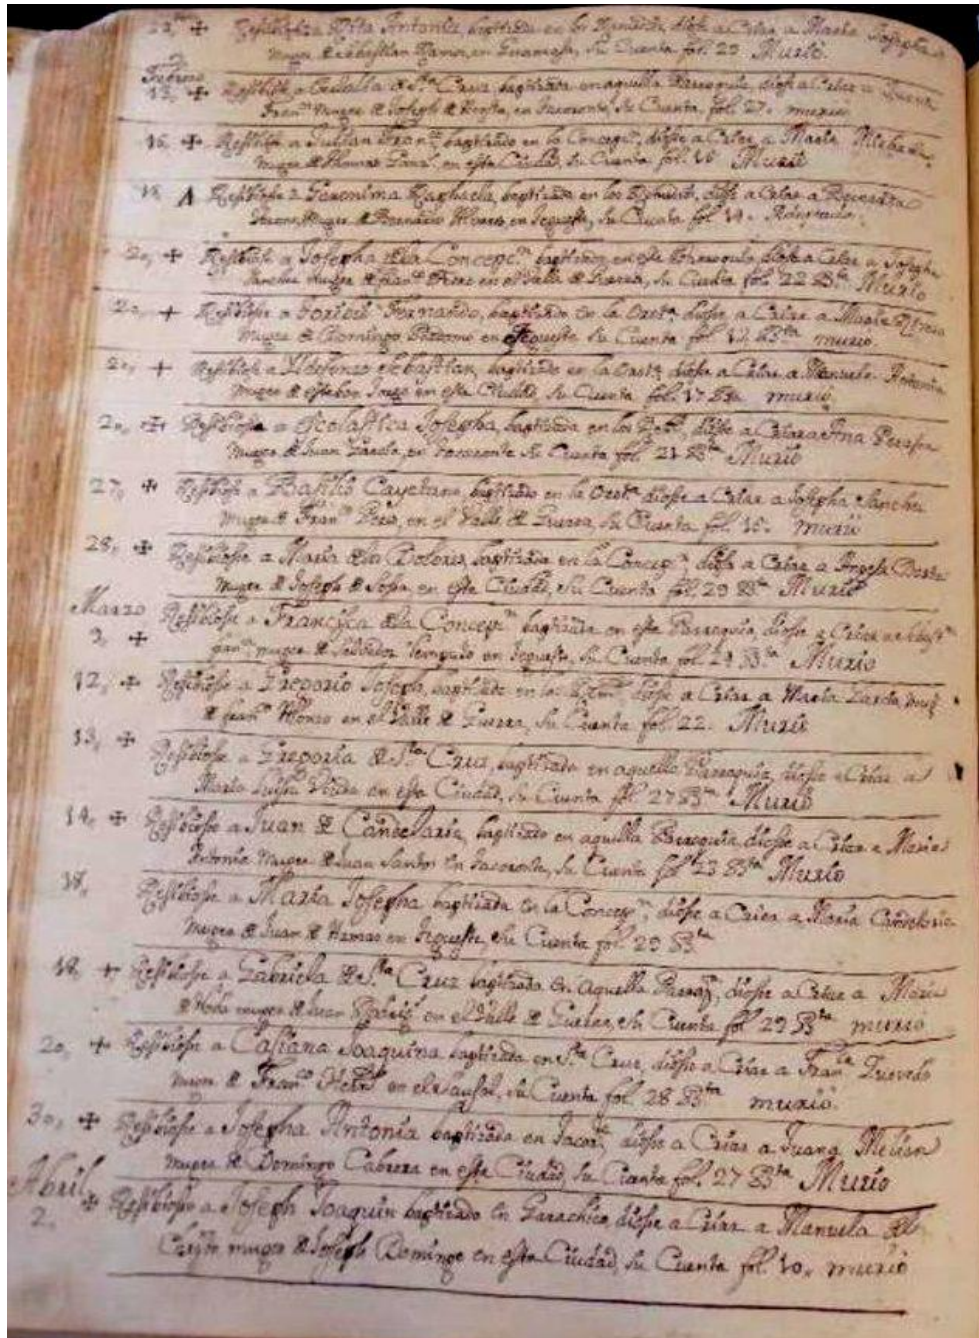 ✠ Resibiose a Rita Antonia, baptizada en los Remedios, diose a Criar a Maria Josepha
muger de Sebastian Ramos, en Guamasa, Su Cuenta fol. 29 Murio.
Febrero
13, ✠ Resibiose a Eulalia de S.ta Cruz, baptizada en aquella Parroquia, diose a Criar a
Fran.ca muger de Joseph de en Tacoronte, Su Cuenta, fol. 27. murio
16, ✠ Resibiose a Julian baptizado en la Concepc.n, diose a Criar, a Maria
muger de Thomas en esta Ciudad, Su Cuenta fol. 16 Murio
18, A Resibiose a Geronima Raphaela, baptizada en los Remedios, diose a Criar a Bernarda
muger de Bernardo Alvares, en Tegueste, Su Cuenta fol. 19.
20, ✠ Resibiose a Josepha de la Concepc.n baptizada, en esta Parroquia, diose a Criar a Josepha
Sanches muger de Fran.co Peres en el Valle de Guerra, Su Cuenta fol. 22 B.ta Murio
20, + Resibiose a Fernando, baptizado en la Orot.a diose a Criar a Maria
muger de Domingo en Tegueste Su Cuenta fol. 12 B.ta murio.
20, + Resibiose a Ildefonso Sebastian, baptizado en la Orot.a diose a Criar a Manuela Antonia
muger de Esteban en esta Ciudad, Su Cuenta fol. 17 B.ta murio,
20, ✠ Resibiose a Escolastica Josepha, baptizada en los diose a Criar a Ana
muger de Juan Garcia, en Tacoronte Su Cuenta fol. 21 B.ta Murio
27, ✠ Resibiose a Basilio Cayetano, baptizado en la Orot.a diose a Criar a Josepha Sanches
muger de Fran.co Peres, en el Valle de Guerra, Su Cuenta fol. 16. murio
28, ✠ Resibiose a Maria de los Dolores, baptizada en la Concepc.n, diose a Criar a Angela
muger de Joseph de Sosa, en esta Ciudad, Su Cuenta fol. 29 B.ta Murio
Marzo Resibiose a Francisca de la Concepc.n baptizada en esta Parroquia, diose a Criar a
3, ✠ muger de Salvador en Tegueste, Su Cuenta fol. 24 B.ta Murio
12, ✠ Resibiose a Gregorio Joseph, baptizado en los diose a Criar a Maria Garcia, mug.r
de Fran.co Alonso en el Valle de Guerra, Su Cuenta fol. 22. Murio
13, ✠ Resibiose a Gregoria de S.ta Cruz, baptizada en aquella Parroquia, diose a Criar a
Maria Viuda en esta Ciudad, Su Cuenta fol. 27 B.ta Murio
14, ✠ Resibiose a Juan de Candelaria, baptizado en aquella Parroquia, diose a Criar a Maria
Antonia muger de Juan Santos en Tacoronte, Su Cuenta fol. 23 B.ta Murio
18, Resibiose a Maria Josepha baptizada en la Concepc.n, diose a Criar a Maria Candelaria
muger de Juan de en Tegueste, Su Cuenta fol. 29 B.ta
18, + Resibiose a Gabriela de S.ta Cruz baptizada en aquella Parroq.a, diose a Criar a Maria
muger de Juan Rodrig.s en el Valle de Guerra, Su Cuenta fol. 29 B.ta murio
20, + Resibiose a Casiana Joaquina baptizada en S.ta Cruz, diose a Criar a Fran.ca Quevedo
muger de Fran.co en el Sausal, Su Cuenta fol. 28 B.ta murio.
30, ✠ Resibiose a Josepha Antonia baptizada en Tacor.te, diose a Criar a Juana Melian
muger de Domingo Cabrera en esta Ciudad, Su Cuenta fol. 27 B.ta Murio
Abril ✠ Resibiose a Joseph Joaquin baptizado en Garachico, diose a Criar a Manuela del
2. Cristo muger de Joseph Domingo en esta Ciudad, Su Cuenta fol. 10, murio